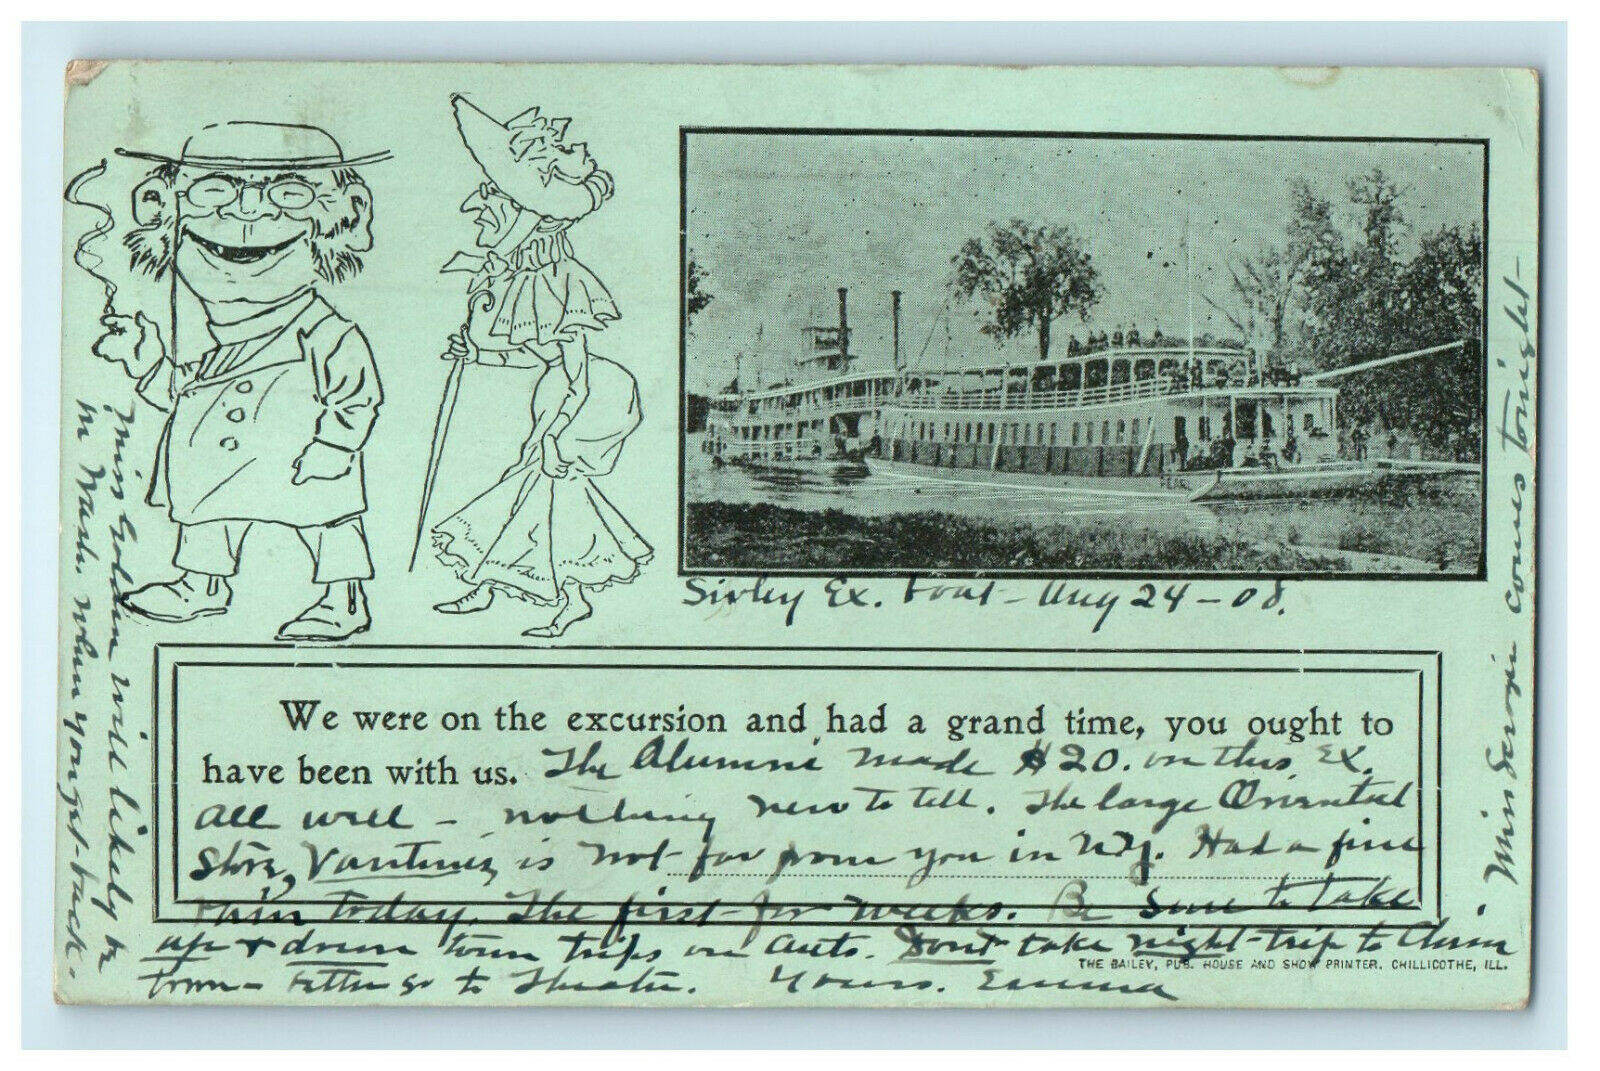 Ex. boat - Aug 24 - 08.
We were on the excursion and had a grand time, you ought to
have been with us. The Alumni made $20. on this Ex.
All well - nothing new to tell. The large Oriental
Store, Vantines, is not far from you in N.Y. Had a fine
rain today. The first for weeks. Be sure to take
up & down town trips on autos. Dont take night trip to China
town - better go to Theatre. Yours. Emma
THE BAILEY, PUB. HOUSE AND SHOW PRINTER. CHILLICOTHE, ILL.
Miss Goldin will likely be
in Wash. when you get back.
Miss comes tonight -